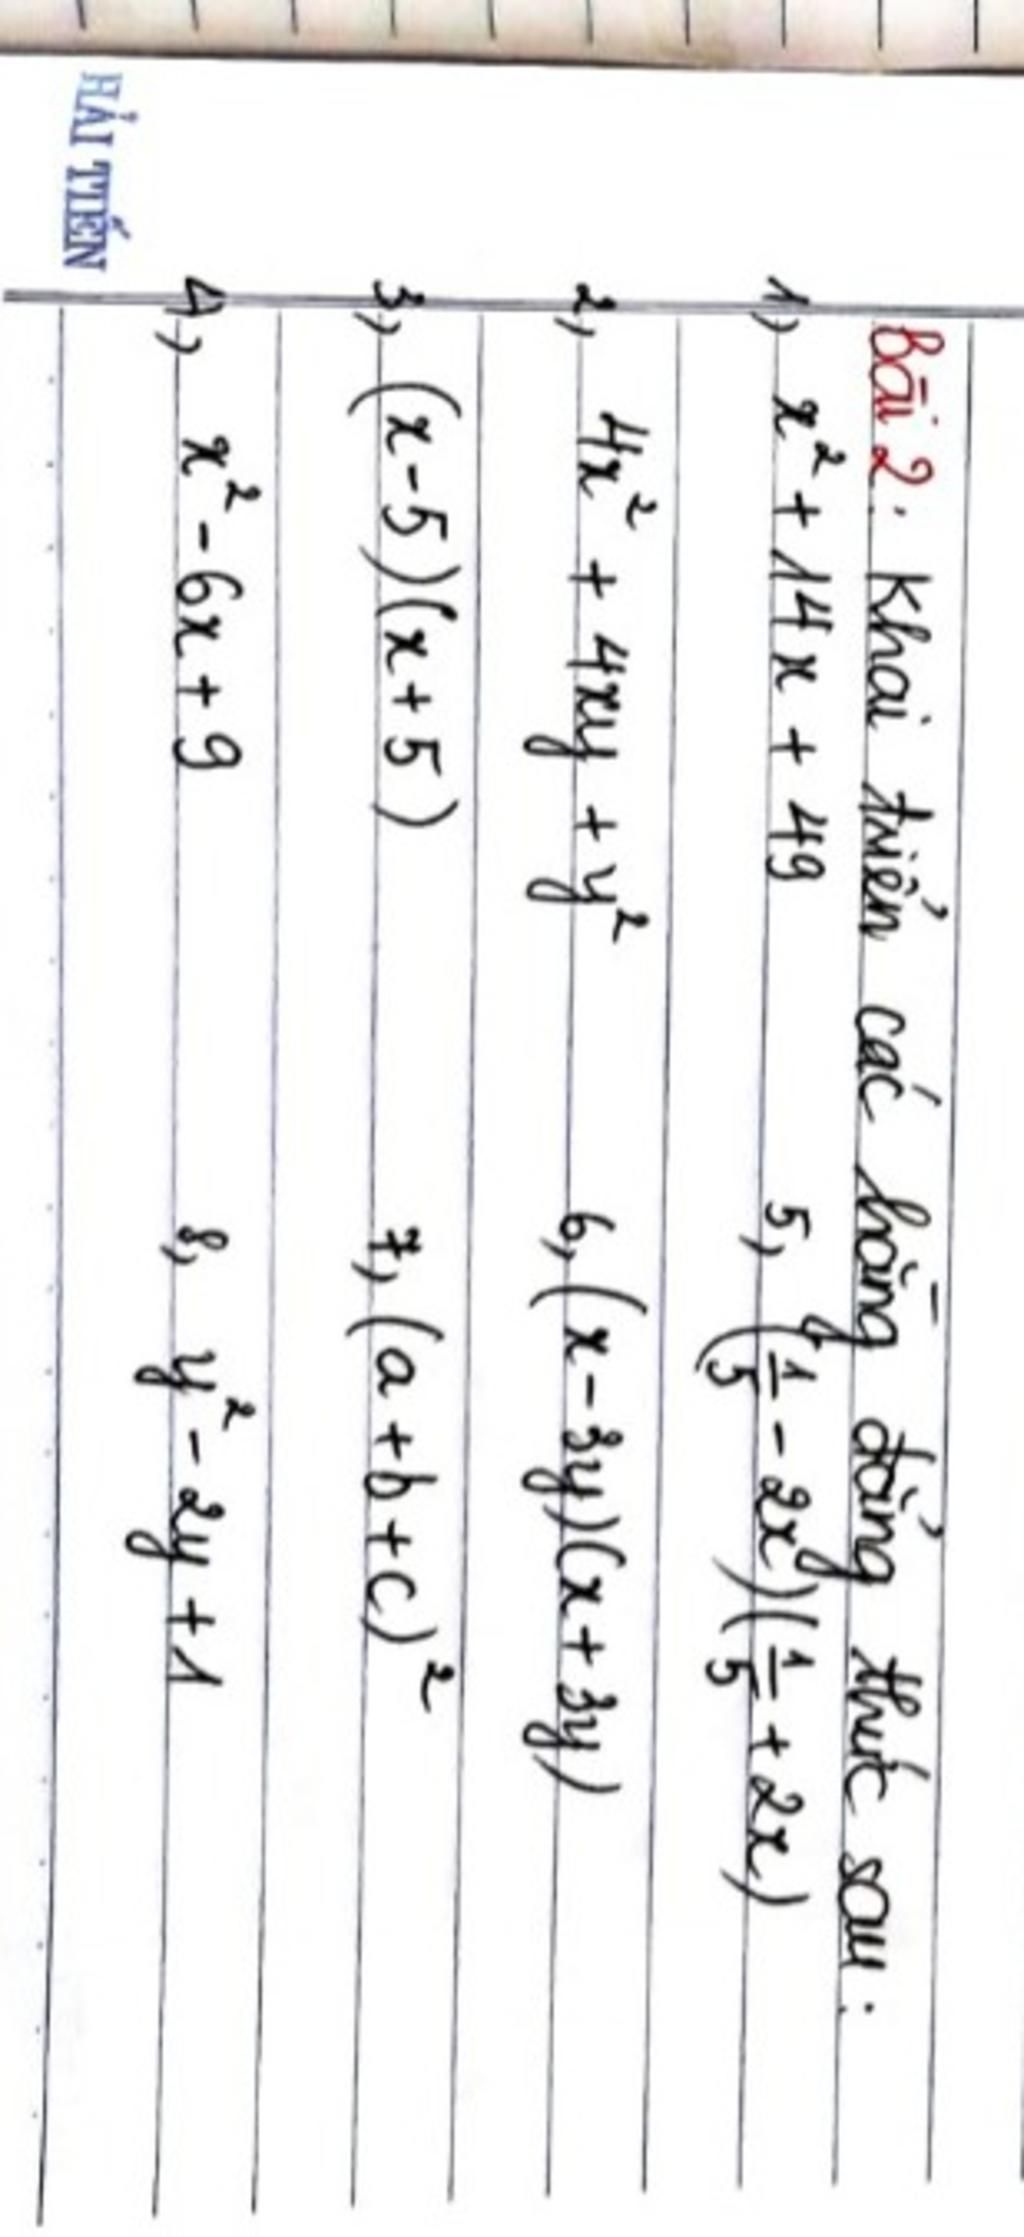 Bài 2: Khai triển các hằng đẳng thức sau:
1, x² + 14x + 49
5, (1/5 - 2x)(1/5 + 2x)
2, 4x² + 4xy + y²
6, (x - 3y)(x + 3y)
3, (x - 5)(x + 5)
7, (a + b + c)²
4, x² - 6x + 9
8, y² - 2y + 1
HẢI TIẾN